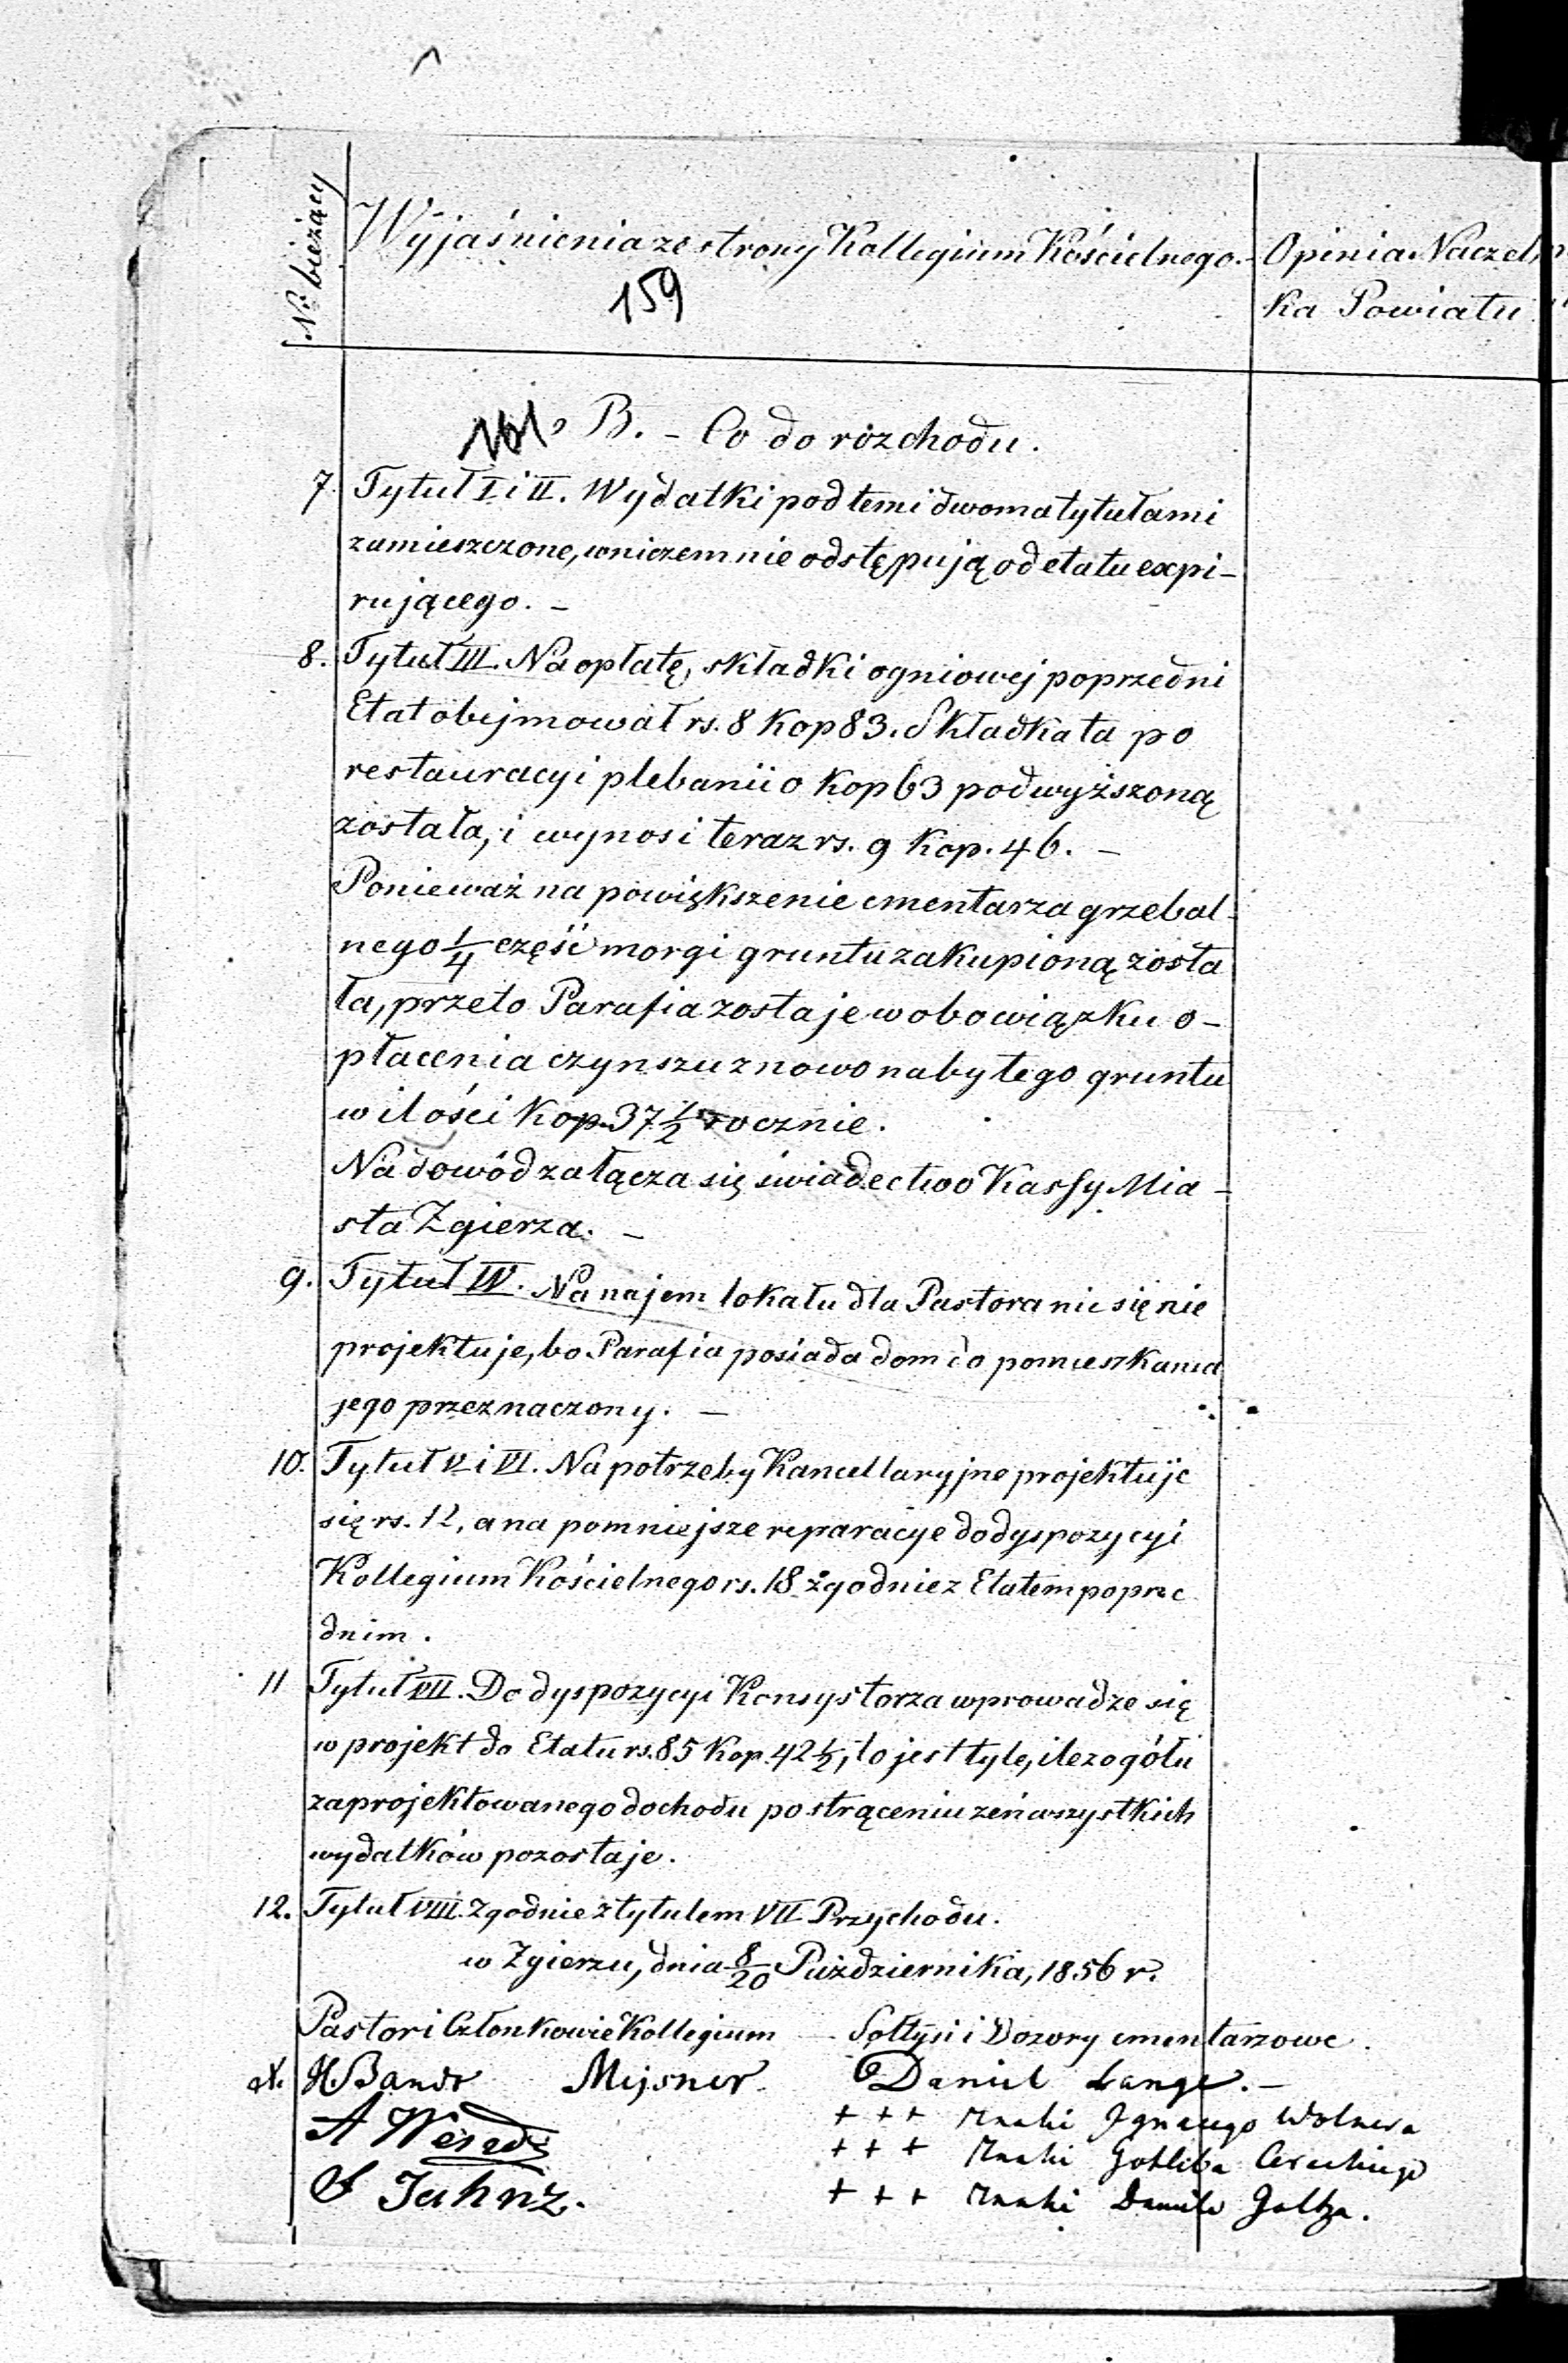 Nr bieżący
Wyjaśnienia ze strony Kollegium Kościelnego.
Opinia Naczelni
ka Powiatu
159
B. – Co do rozchodu.
7. Tytuł I i II. Wydatki pod temi dwoma tytułami
zamieszczone, w niczem nie odstępują od etatu expi–
rującego. –
8. Tytuł III. Na opłatę, składki ogniowej poprzedni
Etat obejmował rs. 8 kop 83. Składka ta po
restauracyi plebanii o kop 63 podwyższoną
została, i wynosi teraz rs. 9 kop. 46. –
Ponieważ na powiększenie cmentarza grzebal–
nego 1/4 część morgi gruntu zakupioną zosta
ła, przeto Parafia zostaje w obowiązku o–
płacenia czynszu z nowo nabytego gruntu
w ilości kop. 37 1/2 rocznie.
Na dowód załącza się świadectwo Kassy Mia–
sta Zgierza. –
9. Tytuł IV. Na najem lokalu dla Pastora nic się nie
projektuje, bo Parafia posiada dom do pomieszkania
jego przeznaczony. –
10. Tytuł V i VI. Na potrzeby Kancellaryjne projektuje
się rs. 12, a na pomniejsze reparacye do dyspozycyi
Kollegium Kościelnego rs. 18 zgodnie z Etatem poprze
dnim.
11 Tytuł VII. Do dyspozycyi Konsystorza wprowadze się
w projekt do Etatu rs. 85 kop. 42 1/2, to jest tyle, ile z ogółu
zaprojektowanego dochodu po strąceniu zeń wszystkich
wydatków pozostaje.
12. Tytuł VIII. Zgodnie z tytułem VII Przychodu.
w Zgierzu, dnia 8/20 Października, 1856 r.
Pastor i Członkowie Kollegium
Sołtysi i Dozory cmentarzowe.
Daniel Lange. –
+ + + znaki Ignacego
+ + + znaki Gotliba
S Jahnz.
+ + + znaki Daniela